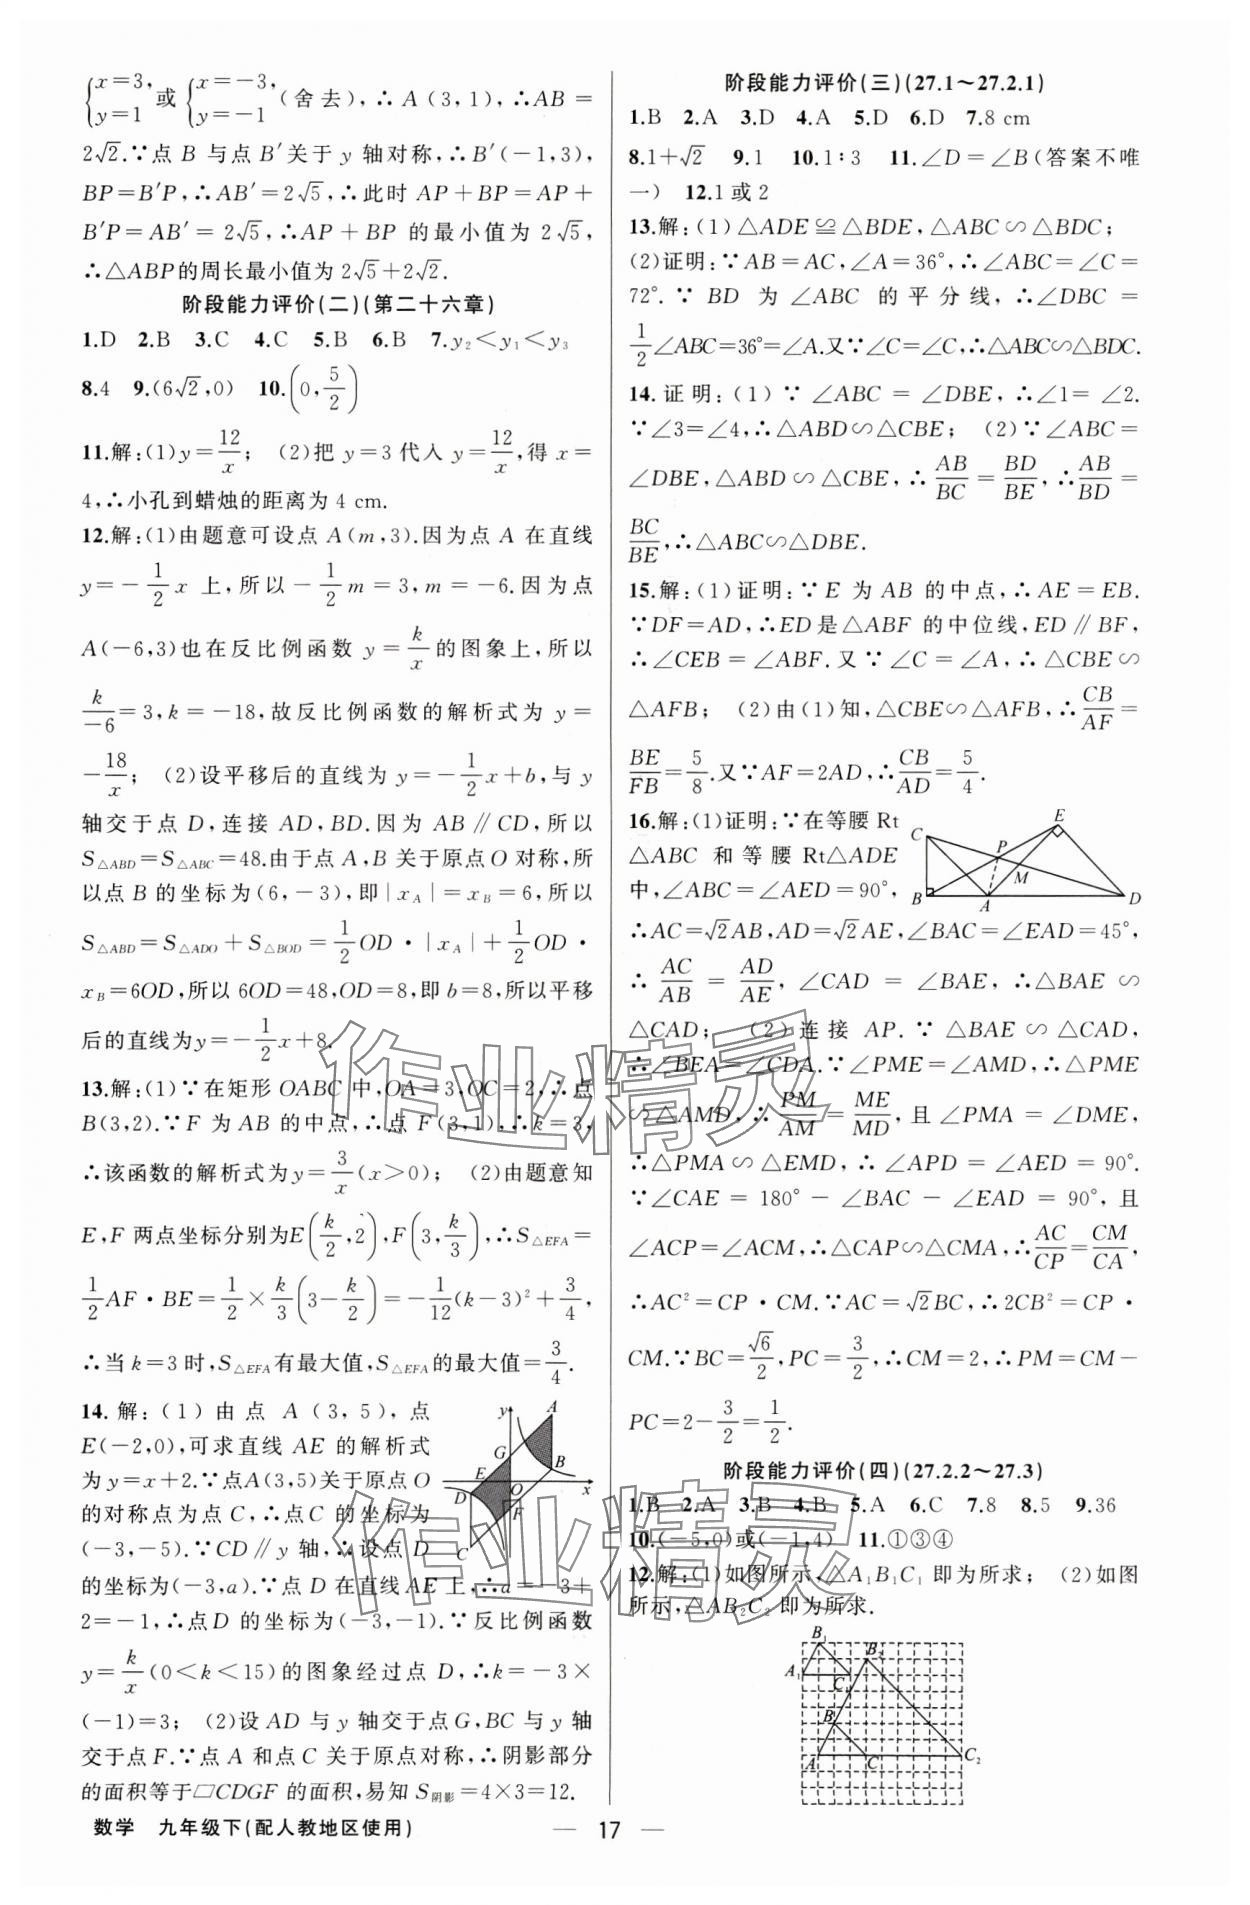 {x=3, y=1 或 {x=-3, y=-1 (舍去),∴A(3,1),∴AB=
2√2.∵点B与点B′关于y轴对称,∴B′(-1,3),
BP=B′P,∴AB′=2√5,∴此时AP+BP=AP+
B′P=AB′=2√5,∴AP+BP的最小值为2√5,
∴△ABP的周长最小值为2√5+2√2.
阶段能力评价(二)(第二十六章)
1.D 2.B 3.C 4.C 5.B 6.B 7.y₂<y₁<y₃
8.4 9.(6√2,0) 10.(0,5/2)
11.解:(1)y=12/x; (2)把y=3代入y=12/x,得x=
4,∴小孔到蜡烛的距离为4 cm.
12.解:(1)由题意可设点A(m,3).因为点A在直线
y=-1/2x上,所以-1/2m=3,m=-6.因为点
A(-6,3)也在反比例函数y=k/x的图象上,所以
k/-6=3,k=-18,故反比例函数的解析式为y=
-18/x; (2)设平移后的直线为y=-1/2x+b,与y
轴交于点D,连接AD,BD.因为AB∥CD,所以
S△ABD=S△ABC=48.由于点A,B关于原点O对称,所
以点B的坐标为(6,-3),即|xA|=xB=6,所以
S△ABD=S△ADO+S△BOD=1/2OD·|xA|+1/2OD·
xB=6OD,所以6OD=48,OD=8,即b=8,所以平移
后的直线为y=-1/2x+8.
13.解:(1)∵在矩形OABC中,OA=3,OC=2,∴点
B(3,2).∵F为AB的中点,∴点F(3,1),∴k=3,
∴该函数的解析式为y=3/x(x>0); (2)由题意知
E,F两点坐标分别为E(k/2,2),F(3,k/3),∴S△EFA=
1/2AF·BE=1/2×k/3(3-k/2)=-1/12(k-3)²+3/4,
∴当k=3时,S△EFA有最大值,S△EFA的最大值=3/4.
14.解:(1)由点A(3,5),点
E(-2,0),可求直线AE的解析式
为y=x+2.∵点A(3,5)关于原点O
的对称点为点C,∴点C的坐标为
(-3,-5).∵CD∥y轴,∴设点D
的坐标为(-3,a).∵点D在直线AE上,∴a=-3+
2=-1,∴点D的坐标为(-3,-1).∵反比例函数
y=k/x(0<k<15)的图象经过点D,∴k=-3×
(-1)=3; (2)设AD与y轴交于点G,BC与y轴
交于点F.∵点A和点C关于原点对称,∴阴影部分
的面积等于▱CDGF的面积,易知S阴影=4×3=12.
y
A
G
B
E
O
x
D
F
C
阶段能力评价(三)(27.1～27.2.1)
1.B 2.A 3.D 4.A 5.D 6.D 7.8 cm
8.1+√2 9.1 10.1∶3 11.∠D=∠B(答案不唯
一) 12.1或2
13.解:(1)△ADE≌△BDE,△ABC∽△BDC;
(2)证明:∵AB=AC,∠A=36°,∴∠ABC=∠C=
72°.∵BD为∠ABC的平分线,∴∠DBC=
1/2∠ABC=36°=∠A.又∵∠C=∠C,∴△ABC∽△BDC.
14.证明:(1)∵∠ABC=∠DBE,∴∠1=∠2.
∵∠3=∠4,∴△ABD∽△CBE; (2)∵∠ABC=
∠DBE,△ABD∽△CBE,∴AB/BC=BD/BE,∴AB/BD=
BC/BE,∴△ABC∽△DBE.
15.解:(1)证明:∵E为AB的中点,∴AE=EB.
∵DF=AD,∴ED是△ABF的中位线,ED∥BF,
∴∠CEB=∠ABF.又∵∠C=∠A,∴△CBE∽
△AFB; (2)由(1)知,△CBE∽△AFB,∴CB/AF=
BE/FB=5/8.又∵AF=2AD,∴CB/AD=5/4.
16.解:(1)证明:∵在等腰Rt
△ABC和等腰Rt△ADE
中,∠ABC=∠AED=90°,
C
E
P
M
B
A
D
∴AC=√2AB,AD=√2AE,∠BAC=∠EAD=45°,
∴AC/AB=AD/AE,∠CAD=∠BAE,∴△BAE∽
△CAD; (2)连接AP.∵△BAE∽△CAD,
∴∠BEA=∠CDA.∵∠PME=∠AMD,∴△PME
∽△AMD,∴PM/AM=ME/MD,且∠PMA=∠DME,
∴△PMA∽△EMD,∴∠APD=∠AED=90°.
∵∠CAE=180°-∠BAC-∠EAD=90°,且
∠ACP=∠ACM,∴△CAP∽△CMA,∴AC/CP=CM/CA,
∴AC²=CP·CM.∵AC=√2BC,∴2CB²=CP·
CM.∵BC=√6/2,PC=3/2,∴CM=2,∴PM=CM-
PC=2-3/2=1/2.
阶段能力评价(四)(27.2.2～27.3)
1.B 2.A 3.B 4.B 5.A 6.C 7.8 8.5 9.36
10.(-5,0)或(-1,4) 11.①③④
12.解:(1)如图所示,△A₁B₁C₁即为所求; (2)如图
所示,△AB₂C₂即为所求.
B₁
B₂
A₁
C₁
B
A
C
C₂
作业精灵
作业精灵
数学 九年级下(配人教地区使用)
— 17 —